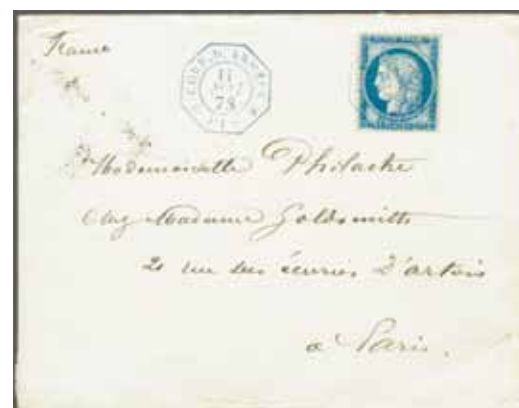 France
CORR. D. ARMÉES
11
73
Mademoiselle Philastre
Chez Madame Goldsmith
21 rue des écuries d'artois
à Paris.